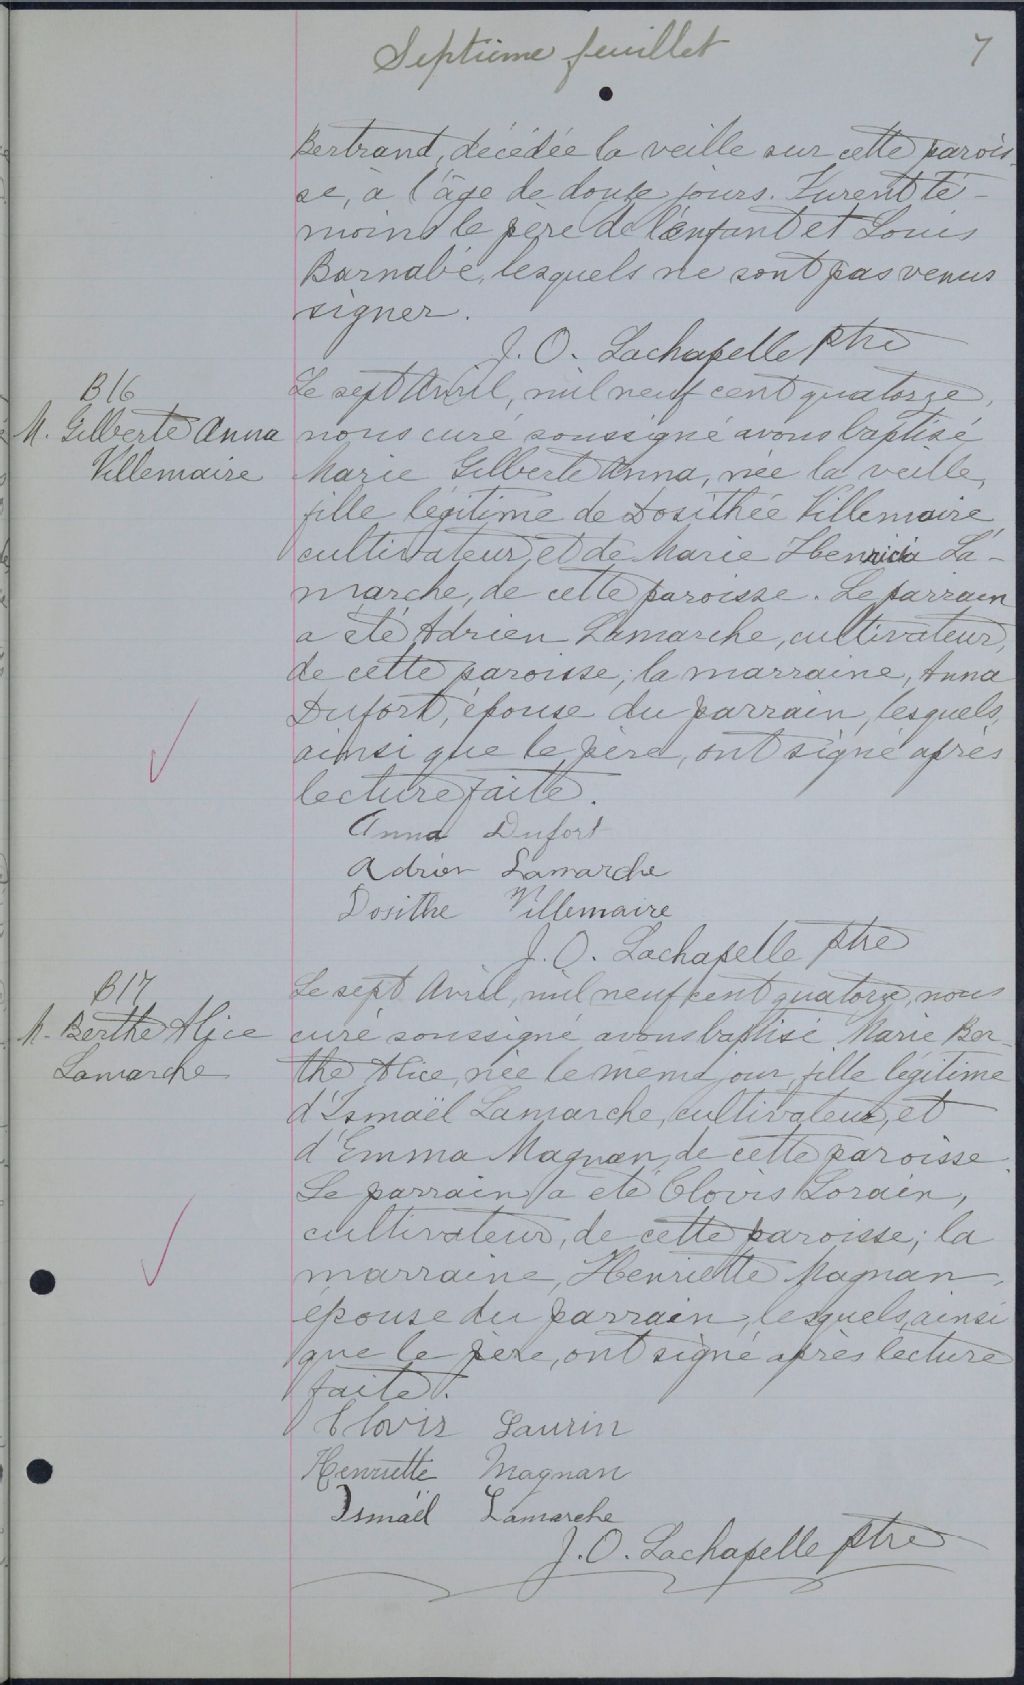 Septième feuillet
7
Bertrand, décédée la veille sur cette parois-
se, à l'âge de douze jours. Furent té-
moins le père de l'enfant et Louis
Barnabé, lesquels ne sont pas venus
signer.
J. O. Lachapelle ptre
B16
M. Gilberte Anna
Villemaire
Le sept Avril, mil neuf cent quatorze,
nous curé soussigné avons baptisé
Marie Gilberte Anna, née la veille,
fille légitime de Dosithée Villemaire,
cultivateur, et de Marie Henricia La-
marche, de cette paroisse. Le parrain
a été Adrien Lamarche, cultivateur,
de cette paroisse; la marraine, Anna
Dufort, épouse du parrain, lesquels,
ainsi que le père, ont signé après
lecture faite.
Anna Dufort
Adrien Lamarche
Dosithe Villemaire
J. O. Lachapelle ptre
B17
M. Berthe Alice
Lamarche
Le sept Avril, mil neuf cent quatorze, nous
curé soussigné avons baptisé Marie Ber-
the Alice, née le même jour, fille légitime
d'Ismaël Lamarche, cultivateur, et
d'Emma Magnan, de cette paroisse.
Le parrain a été Clovis Lorain,
cultivateur, de cette paroisse; la
marraine, Henriette Magnan,
épouse du parrain, lesquels, ainsi
que le père, ont signé après lecture
faite.
Clovis Laurin
Henriette Magnan
Ismaël Lamarche
J. O. Lachapelle ptre